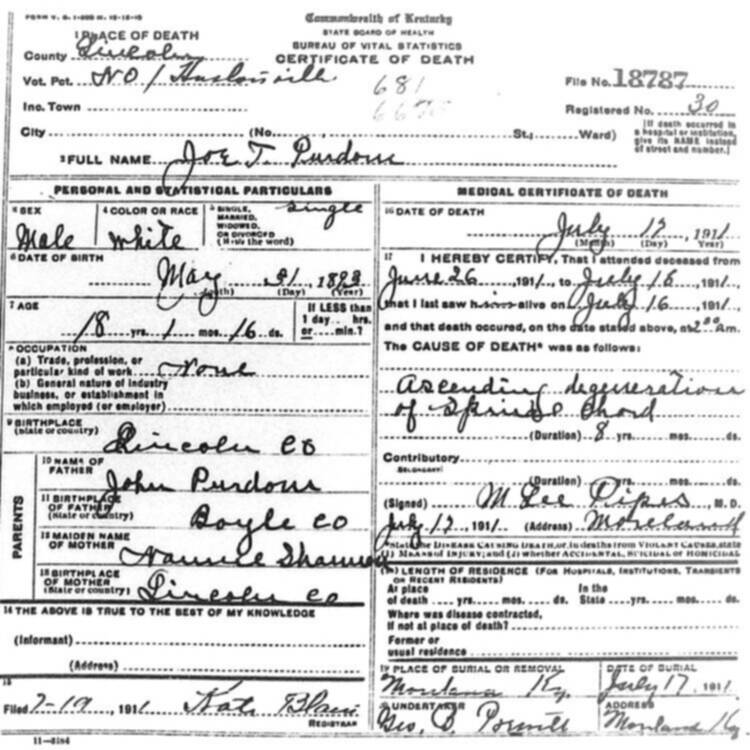 FORM V. S. 1-200 M. 12-15-10
Commonwealth of Kentucky
STATE BOARD OF HEALTH
BUREAU OF VITAL STATISTICS
CERTIFICATE OF DEATH
1 PLACE OF DEATH
County Lincoln
Vot. Pct. NO 1 Hustonville
681
File No. 18787
Inc. Town
Registered No. 30
City (No. St.; Ward)
[If death occurred in a hospital or institution, give its NAME instead of street and number.]
2 FULL NAME Joe T. Purdom
PERSONAL AND STATISTICAL PARTICULARS
3 SEX Male
4 COLOR OR RACE white
5 SINGLE, MARRIED, WIDOWED, OR DIVORCED (Write the word) single
6 DATE OF BIRTH
May 31, 1893
(Month) (Day) (Year)
7 AGE
18 yrs. 1 mos. 16 ds.
If LESS than 1 day hrs. or min.?
8 OCCUPATION
(a) Trade, profession, or particular kind of work None
(b) General nature of industry business, or establishment in which employed (or employer)
9 BIRTHPLACE
(State or country) Lincoln Co
PARENTS
10 NAME OF FATHER John Purdom
11 BIRTHPLACE OF FATHER (State or country) Boyle Co
12 MAIDEN NAME OF MOTHER Nannie Shannon
13 BIRTHPLACE OF MOTHER (State or country) Lincoln Co
14 THE ABOVE IS TRUE TO THE BEST OF MY KNOWLEDGE
(Informant)
(Address)
15
Filed 7-19, 1911 Kate Blain
REGISTRAR
11-8184
MEDICAL CERTIFICATE OF DEATH
16 DATE OF DEATH
July 17, 1911
(Month) (Day) (Year)
17 I HEREBY CERTIFY, That I attended deceased from
June 26, 1911, to July 15, 1911,
that I last saw him alive on July 16, 1911,
and that death occured, on the date stated above, at 2 00 am.
The CAUSE OF DEATH* was as follows:
Ascending degeneration
of Spinal Chord
(Duration) 8 yrs. mos. ds.
Contributory
SECONDARY
(Duration) yrs. mos. ds.
(Signed) M Lee Pipes M.D.
July 17, 1911 (Address) Moreland
*State the DISEASE CAUSING DEATH, or, in deaths from VIOLENT CAUSES, state (1) MEANS OF INJURY; and (2) whether ACCIDENTAL, SUICIDAL OR HOMICIDAL
18 LENGTH OF RESIDENCE (FOR HOSPITALS, INSTITUTIONS, TRANSIENTS OR RECENT RESIDENTS)
At place of death yrs. mos. ds. In the State yrs. mos. ds.
Where was disease contracted, If not at place of death?
Former or usual residence
19 PLACE OF BURIAL OR REMOVAL
Moreland Ky.
DATE OF BURIAL
July 17, 1911
20 UNDERTAKER
Geo. D.
ADDRESS
Moreland Ky